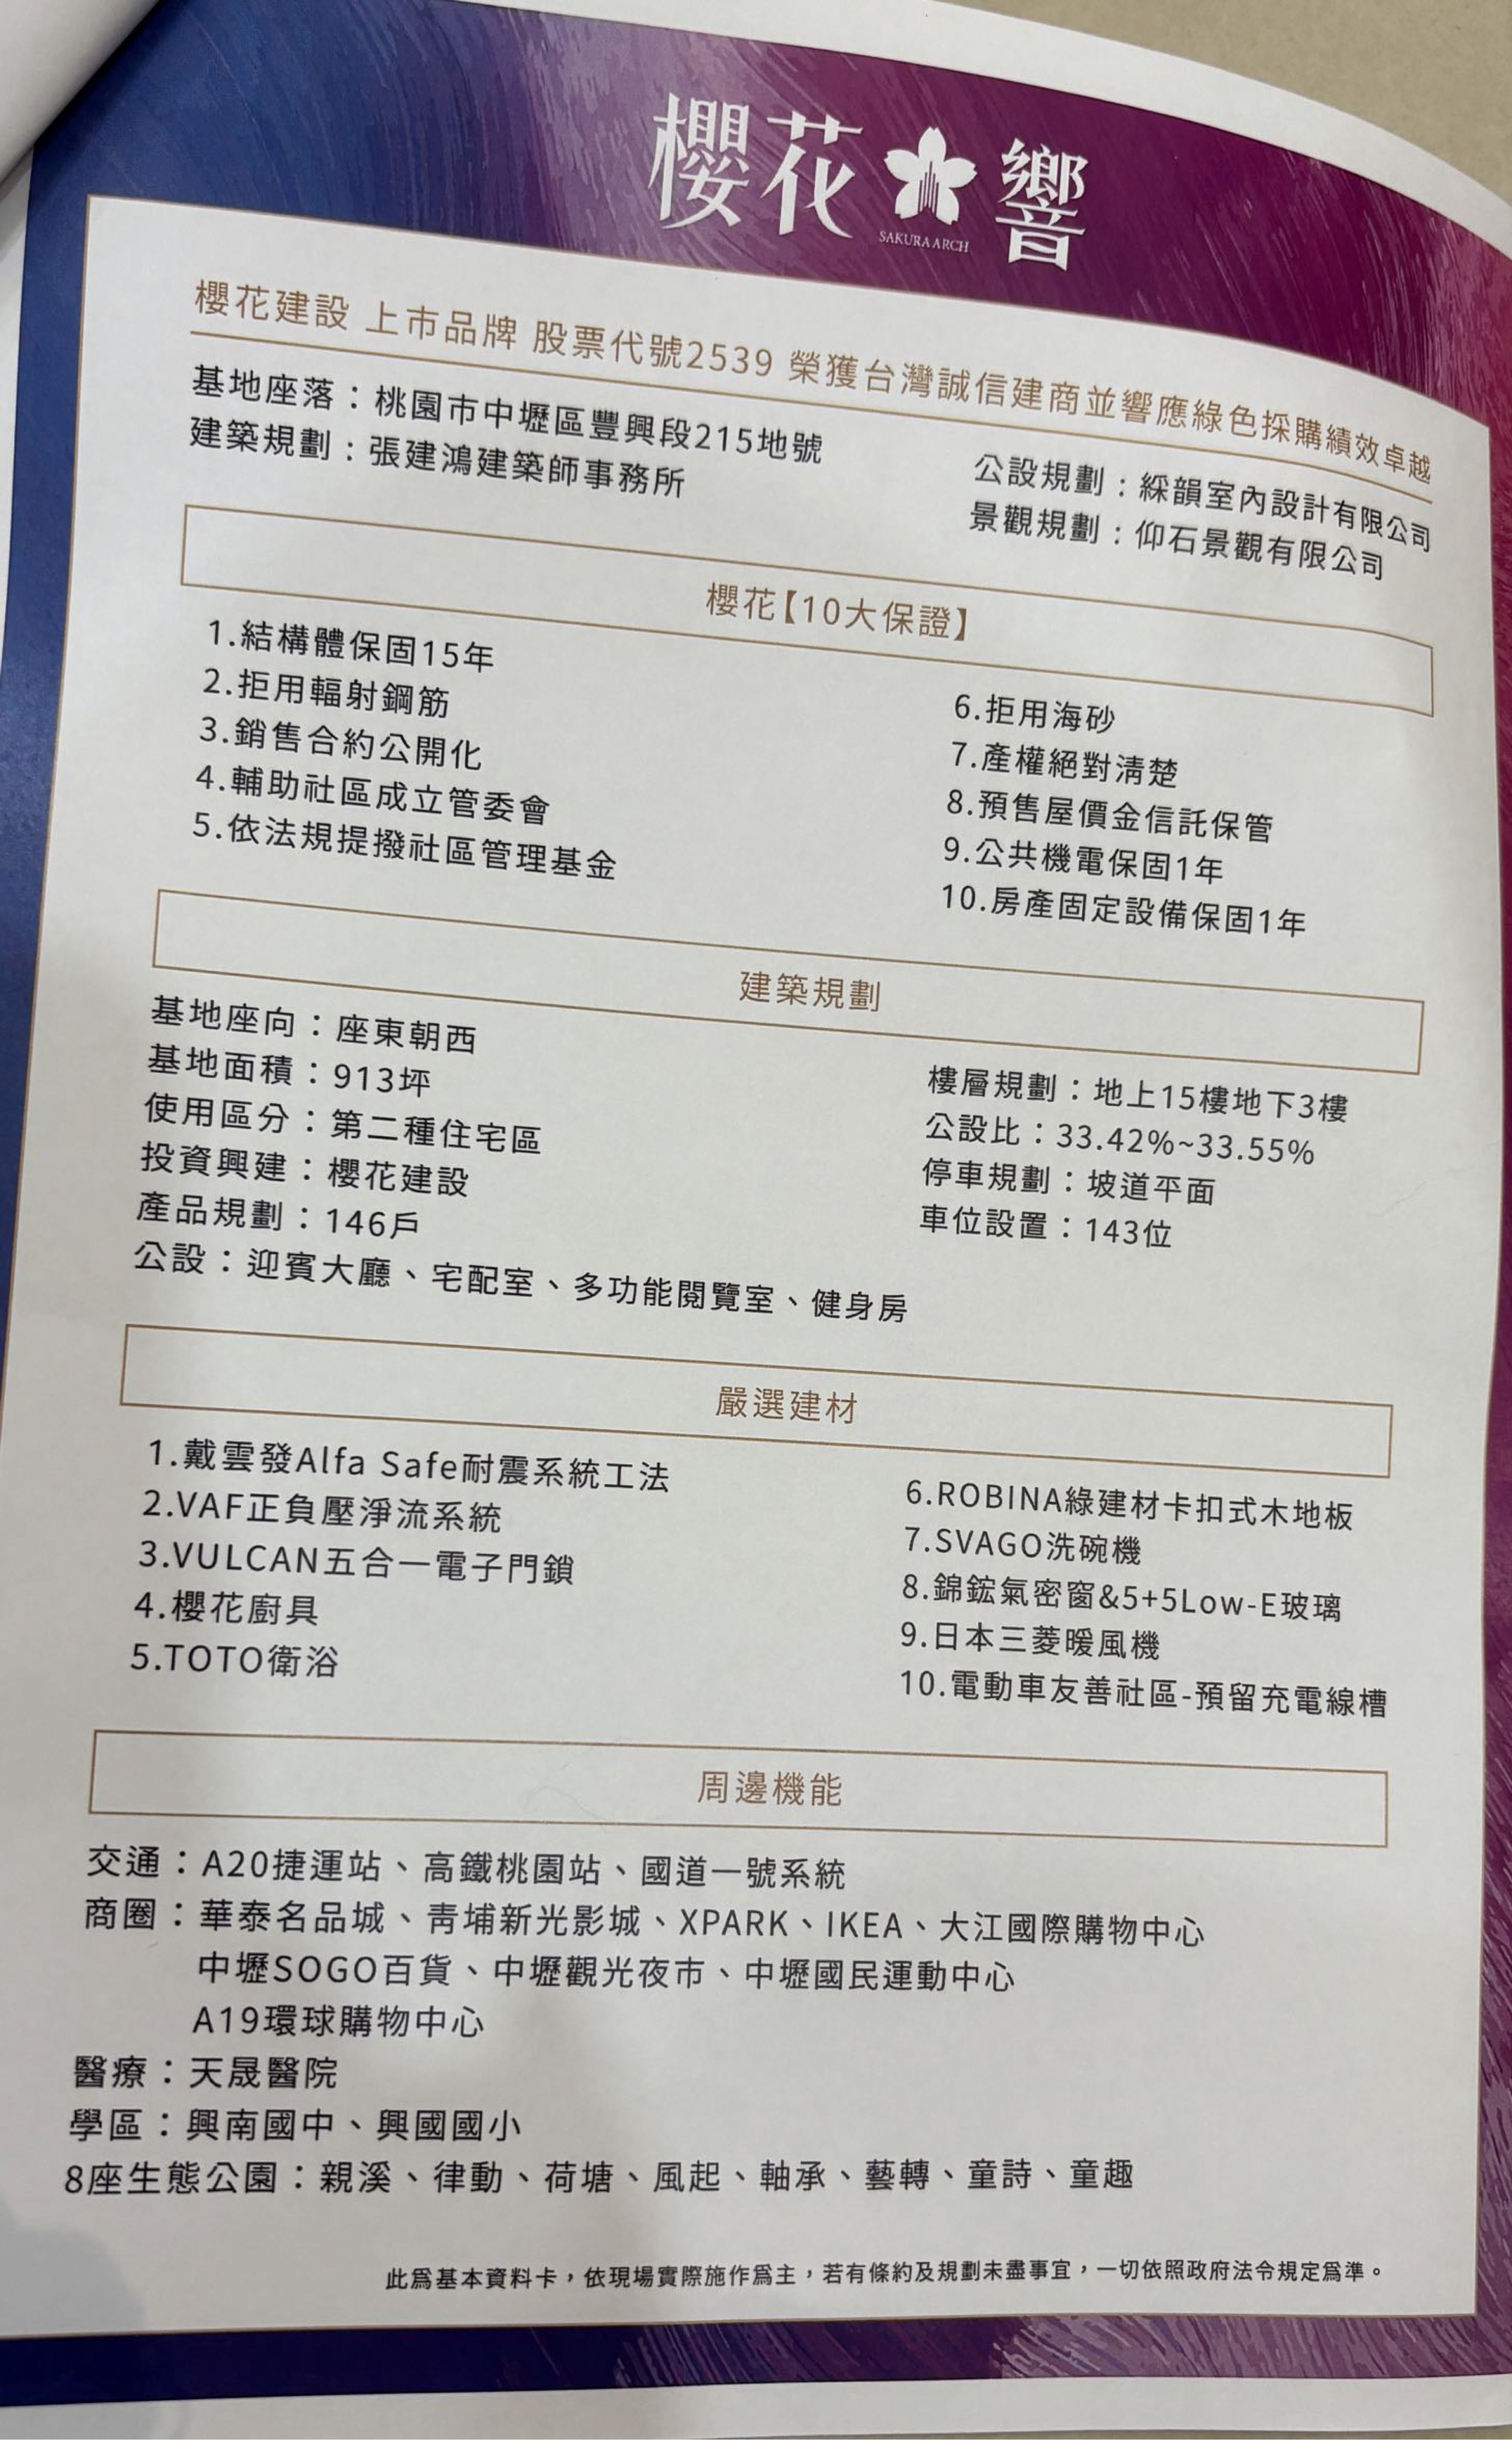 櫻花響
SAKURA ARCH
櫻花建設 上市品牌 股票代號2539 榮獲台灣誠信建商並響應綠色採購績效卓越
基地座落：桃園市中壢區豐興段215地號
建築規劃：張建鴻建築師事務所
公設規劃：綵韻室內設計有限公司
景觀規劃：仰石景觀有限公司
櫻花【10大保證】
1.結構體保固15年
2.拒用輻射鋼筋
3.銷售合約公開化
4.輔助社區成立管委會
5.依法規提撥社區管理基金
6.拒用海砂
7.產權絕對清楚
8.預售屋價金信託保管
9.公共機電保固1年
10.房產固定設備保固1年
建築規劃
基地座向：座東朝西
基地面積：913坪
使用區分：第二種住宅區
投資興建：櫻花建設
產品規劃：146戶
公設：迎賓大廳、宅配室、多功能閱覽室、健身房
樓層規劃：地上15樓地下3樓
公設比：33.42%~33.55%
停車規劃：坡道平面
車位設置：143位
嚴選建材
1.戴雲發Alfa Safe耐震系統工法
2.VAF正負壓淨流系統
3.VULCAN五合一電子門鎖
4.櫻花廚具
5.TOTO衛浴
6.ROBINA綠建材卡扣式木地板
7.SVAGO洗碗機
8.錦鋐氣密窗&5+5Low-E玻璃
9.日本三菱暖風機
10.電動車友善社區-預留充電線槽
周邊機能
交通：A20捷運站、高鐵桃園站、國道一號系統
商圈：華泰名品城、青埔新光影城、XPARK、IKEA、大江國際購物中心
中壢SOGO百貨、中壢觀光夜市、中壢國民運動中心
A19環球購物中心
醫療：天晟醫院
學區：興南國中、興國國小
8座生態公園：親溪、律動、荷塘、風起、軸承、藝轉、童詩、童趣
此為基本資料卡，依現場實際施作為主，若有條約及規劃未盡事宜，一切依照政府法令規定為準。